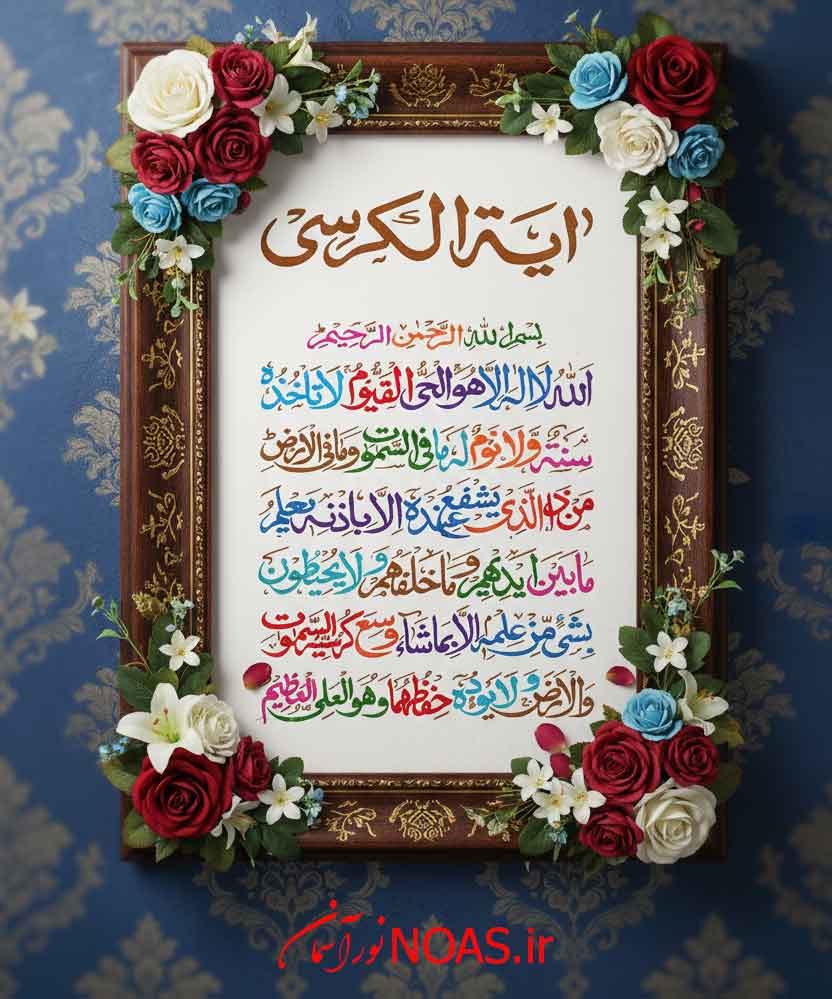 اية الكرسى
بسم الله الرَّحمٰن الرَّحيم
اَللهُ لا اِلٰهَ اِلَّا هُوَ الحَىُّ القَيّومُ لا تَأخُذُهُ
سِنَةٌ وَّلا نَومٌ لَهُ ما فِى السَّمٰوٰتِ وَما فِى الاَرضِ
مَن ذَا الَّذى يَشفَعُ عِندَهُ اِلّا بِاِذنِه يَعلَمُ
ما بَينَ اَيديهِم وَما خَلفَهُم وَلا يُحيطونَ
بِشَىءٍ مِّن عِلمِه اِلّا بِما شاءَ وَسِعَ كُرسِيُّهُ السَّمٰوٰتِ
وَالاَرضَ وَلا يَؤدُهُ حِفظُهُما وَهُوَ العَلِىُّ العَظيمُ
نور آسمان NOAS.ir